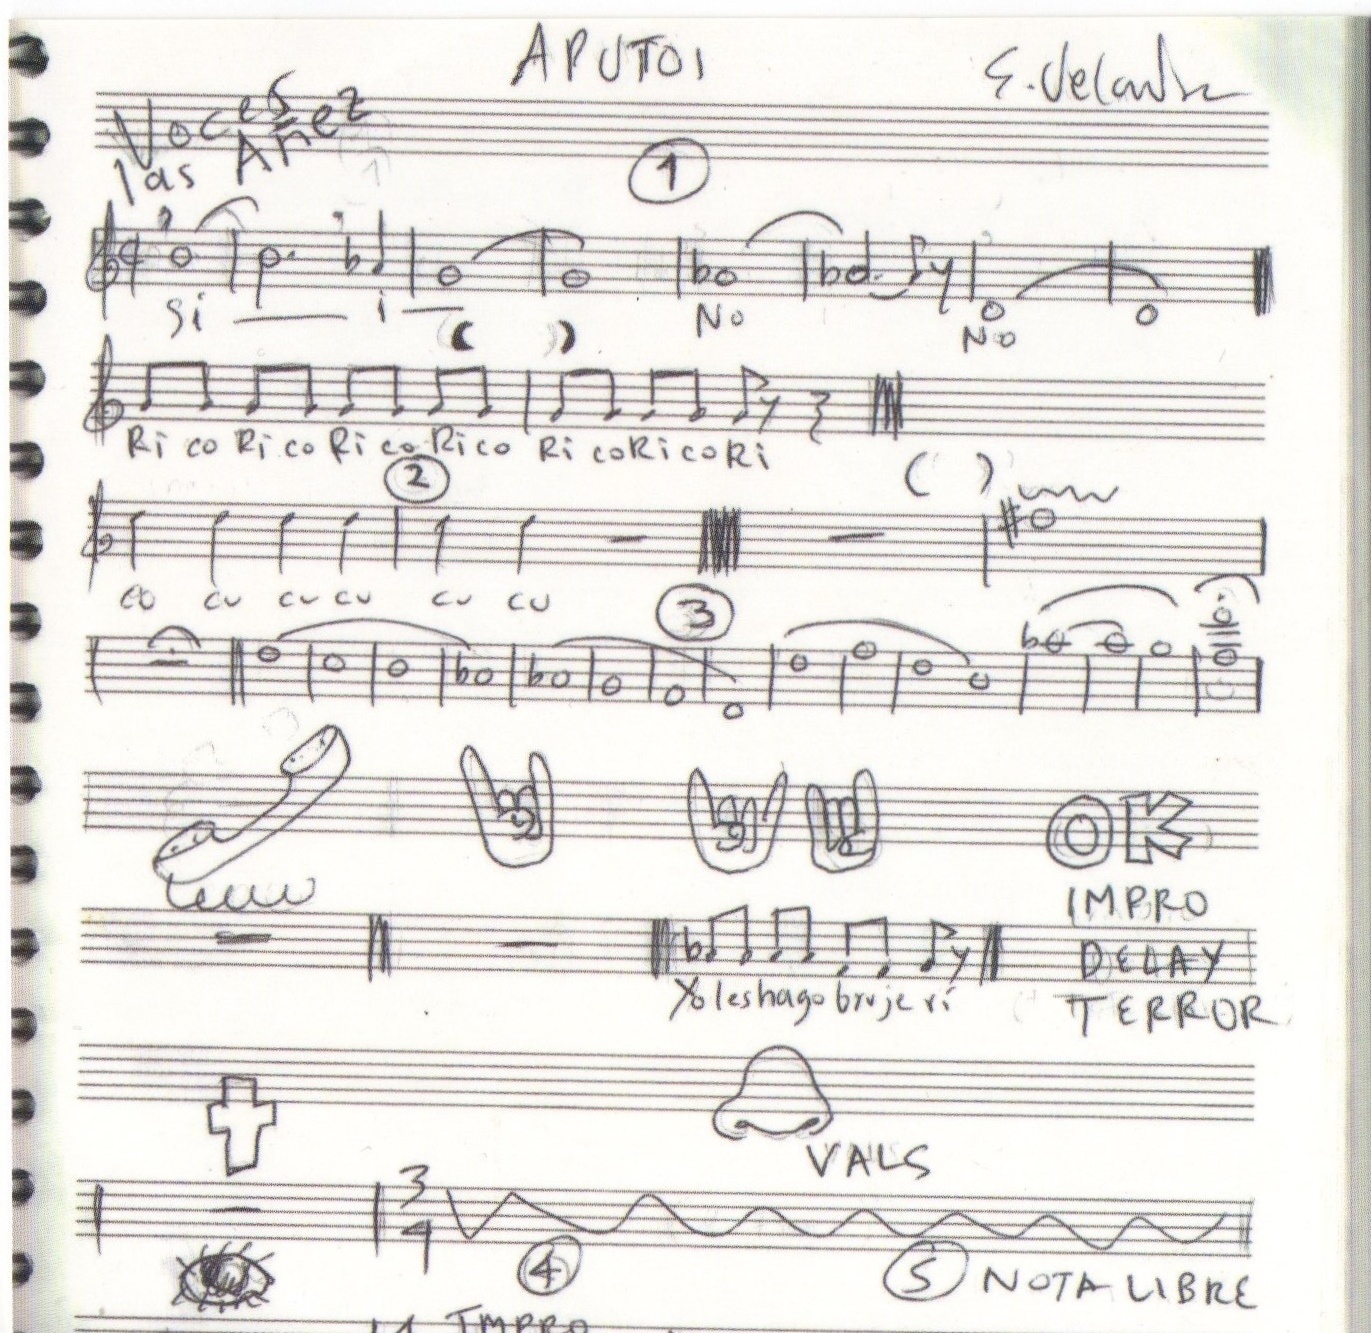 APUTOI
E. Velandia
Voces
las Añez
1
Si i
No No
Ri co Ri co Ri co Ri co Ri co Ri co Ri
2
cu cu cu cu cu cu
3
OK
IMPRO
DELAY
TERROR
Yo les hago brujerí
VALS
3
4
4
5 NOTA LIBRE
IMPRO